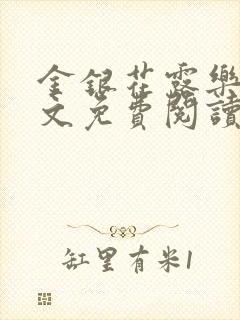 金銀花露樂
文免費閱讀
缸里有米1